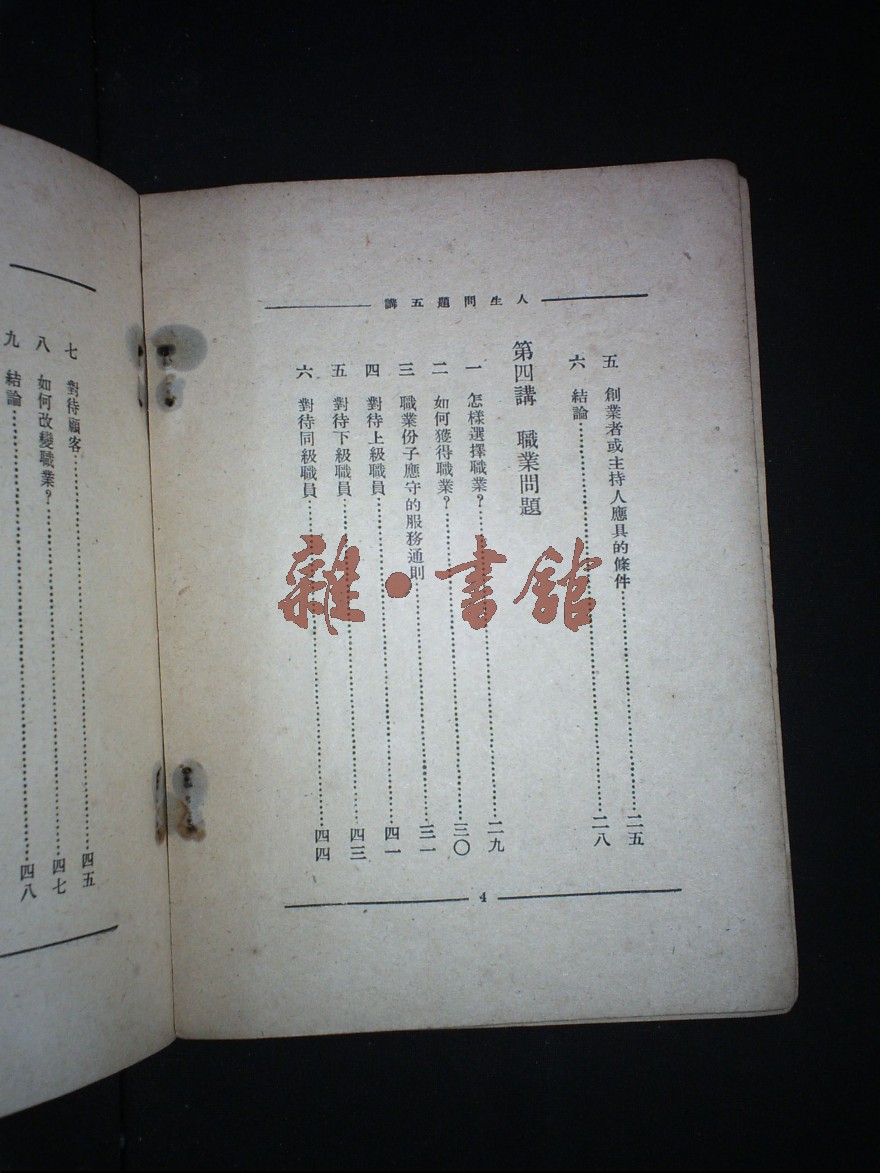 人生問題五講
五 創業者或主持人應具的條件……二五
六 結論……二八
第四講 職業問題
一 怎樣選擇職業?……二九
二 如何獲得職業?……三〇
三 職業份子應守的服務通則……三一
四 對待上級職員……四一
五 對待下級職員……四三
六 對待同級職員……四四
4
七 對待顧客……四五
八 如何改變職業?……四七
九 結論……四八
雜·書館